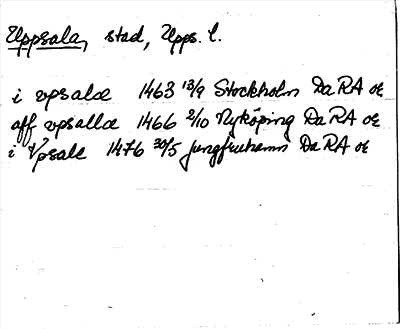 Uppsala, stad, Upps. l.
i vpsalæ 1463 13/9 Stockholm DaRA or
aff vpsallæ 1466 2/10 Nyköping DaRA or
i Vpsale 1476 30/5 Jungfruhamn DaRA or